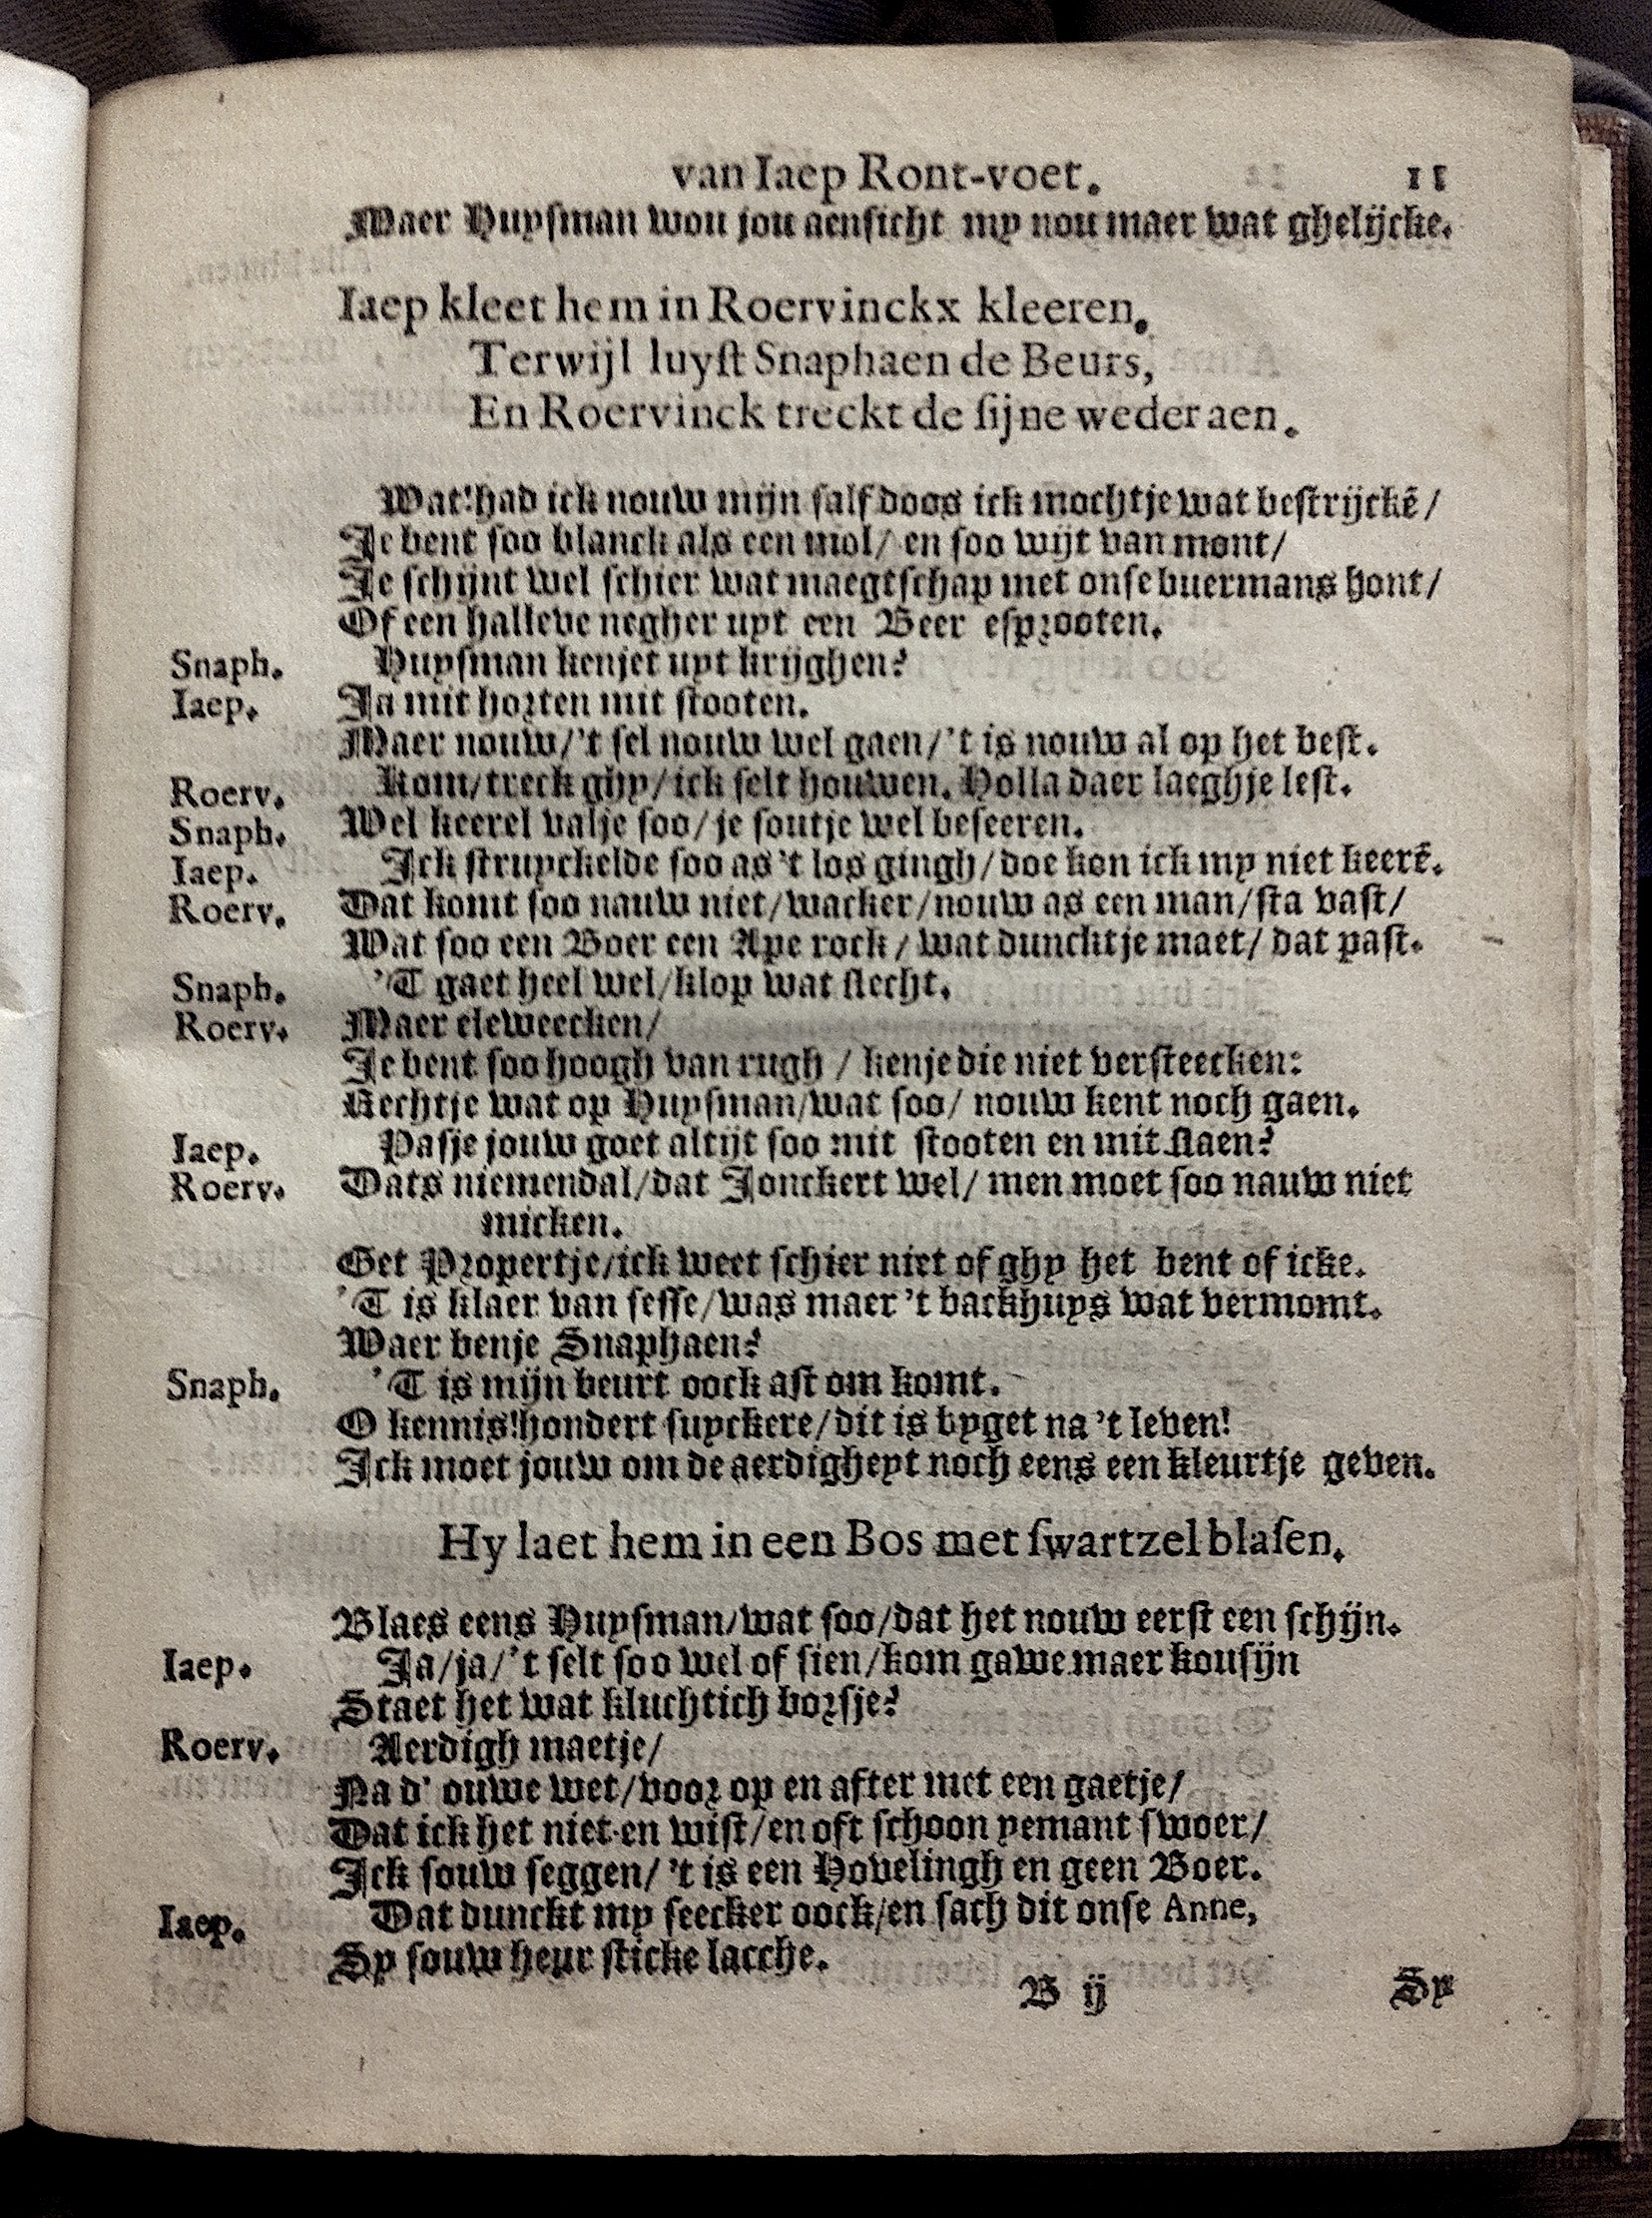 van Iaep Ront-voet. 11
Maer Huysman wou jou aensicht my nou maer wat ghelijcke.
Iaep kleet hem in Roervinckx kleeren.
Terwijl luyſt Snaphaen de Beurs,
En Roervinck treckt de ſijne weder aen.
Wat! had ick nouw mijn ſalfdoos ick mochtje wat beſtrijckē/
Je bent ſoo blanck als een mol/ en ſoo wijt van mont/
Je ſchijnt wel ſchier wat maegtſchap met onſe buermans hont/
Of een halleve negher uyt een Beer eſprooten.
Snaph. Huyſman kenjet uyt krijghen?
Iaep. Ja mit horten mit ſtooten.
Maer nouw/'t ſel nouw wel gaen/'t is nouw al op het beſt.
Roerv. Kom/treck ghy/ick ſelt houwen. Holla daer laeghje leſt.
Snaph. Wel keerel valje ſoo/je ſoutje wel beſeeren.
Iaep. Ick ſtruyckelde ſoo as 't los gingh/doe kon ick my niet keerē.
Roerv. Dat komt ſoo nauw niet/wacker/nouw as een man/ſta vaſt/
Wat ſoo een Boer een Ape rock/wat duncktje maet/dat paſt.
Snaph. 'T gaet heel wel/klop wat ſlecht.
Roerv. Maer eleweecken/
Je bent ſoo hoogh van rugh/kenje die niet verſteecken:
Rechtje wat op Huyſman/wat ſoo/nouw kent noch gaen.
Iaep. Pasje jouw goet altijt ſoo mit ſtooten en mit ſlaen?
Roerv. Dats niemendal/dat Jonckert wel/men moet ſoo nauw niet
micken.
Get Propertje/ick weet ſchier niet of ghy het bent of icke.
'T is klaer van ſeſſe/was maer 't backhuys wat vermomt.
Waer benje Snaphaen?
Snaph. 'T is mijn beurt oock aſt om komt.
O kennis! hondert ſuyckere/dit is byget na 't leven!
Ick moet jouw om de aerdigheyt noch eens een kleurtje geven.
Hy laet hem in een Bos met ſwartzel blaſen.
Blaes eens Huyſman/wat ſoo/dat het nouw eerſt een ſchijn.
Iaep. Ja/ja/'t ſelt ſoo wel of ſien/kom gawe maer kouſijn
Staet het wat kluchtich borſje?
Roerv. Aerdigh maetje/
Na d' ouwe wet/voor op en after met een gaetje/
Dat ick het niet en wiſt/en oft ſchoon yemant ſwoer/
Ick ſouw ſeggen/'t is een Hovelingh en geen Boer.
Iaep. Dat dunckt my ſeecker oock/en ſach dit onſe Anne,
Sy ſouw heur ſticke lacche.
B ij Sy